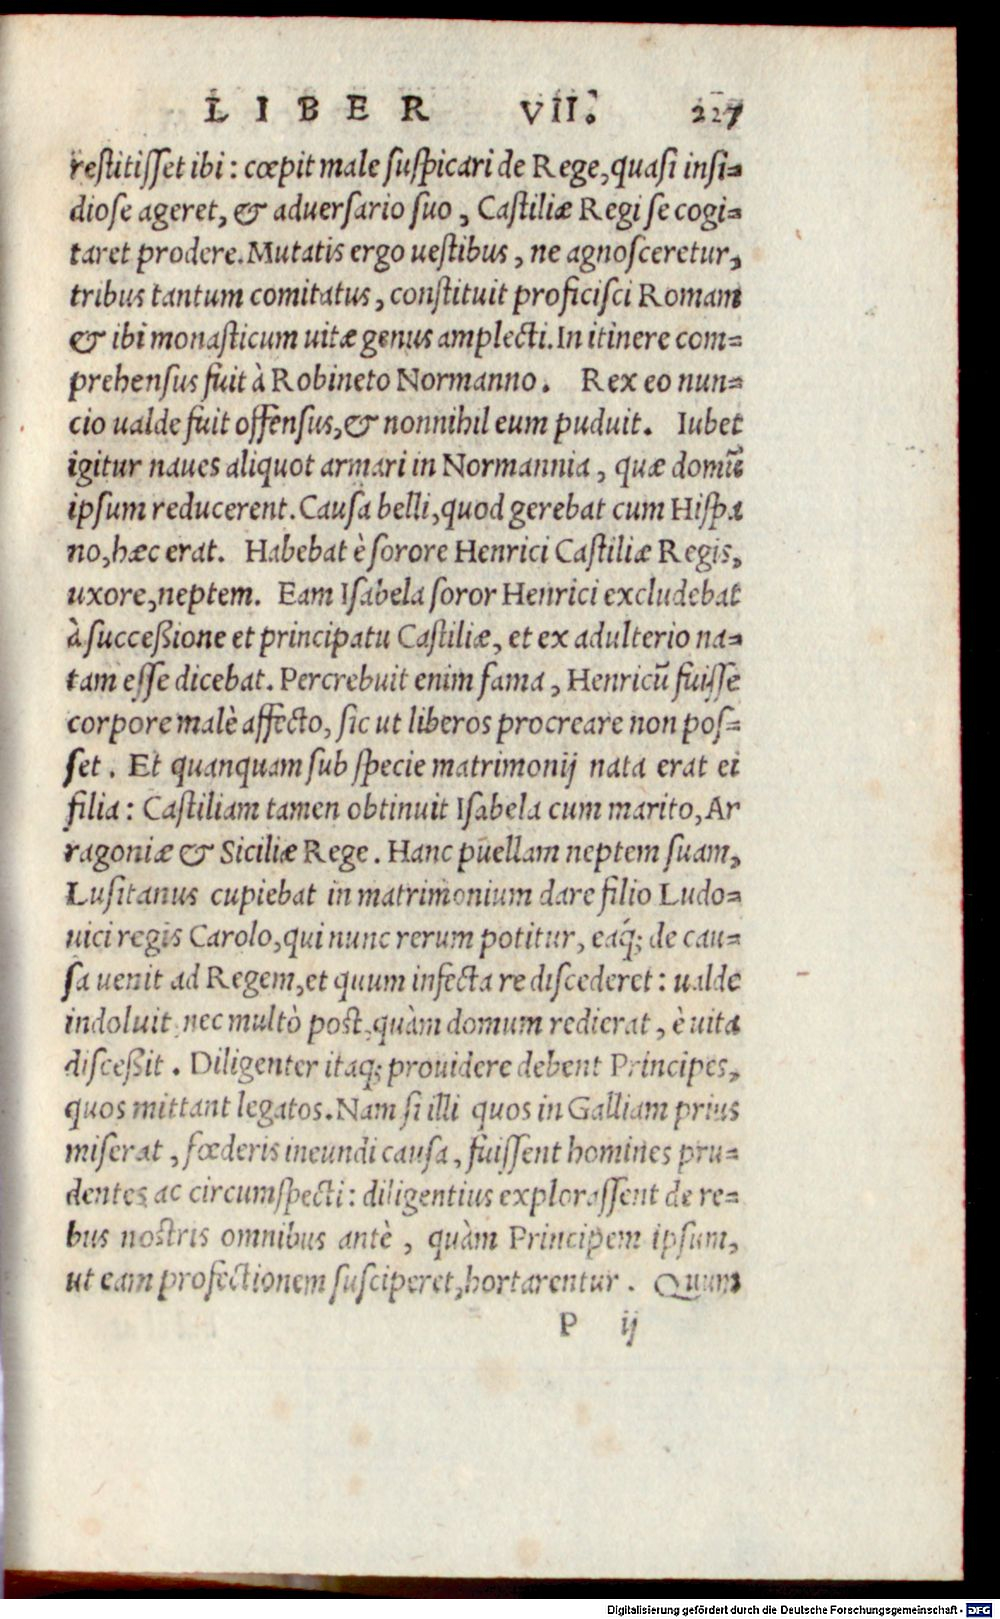 LIBER VII. 227
restitisset ibi: cœpit male suspicari de Rege, quasi insi=
diose ageret, & adversario suo, Castiliæ Regi se cogi=
taret prodere. Mutatis ergo uestibus, ne agnosceretur,
tribus tantum comitatus, constituit proficisci Romam
& ibi monasticum uitæ genus amplecti. In itinere com=
prehensus fuit à Robineto Normanno. Rex eo nun=
cio ualde fuit offensus, & nonnihil eum puduit. Iubet
igitur naues aliquot armari in Normannia, quæ domũ
ipsum reducerent. Causa belli, quod gerebat cum Hispa
no, hæc erat. Habebat è sorore Henrici Castiliæ Regis,
uxore, neptem. Eam Isabela soror Henrici excludebat
à successione et principatu Castiliæ, et ex adulterio na=
tam esse dicebat. Percrebuit enim fama, Henricũ fuisse
corpore malè affecto, sic ut liberos procreare non pos=
set. Et quanquam sub specie matrimonij nata erat ei
filia: Castiliam tamen obtinuit Isabela cum marito, Ar
ragoniæ & Siciliæ Rege. Hanc puellam neptem suam,
Lusitanus cupiebat in matrimonium dare filio Ludo=
uici regis Carolo, qui nunc rerum potitur, eaq́; de cau=
sa uenit ad Regem, et quum infecta re discederet: ualde
indoluit, nec multò post, quàm domum redierat, è uita
discessit. Diligenter itaq; prouidere debent Principes,
quos mittant legatos. Nam si illi quos in Galliam prius
miserat, fœderis ineundi causa, fuissent homines pru=
dentes ac circumspecti: diligentius explorassent de re=
bus nostris omnibus antè, quàm Principem ipsum,
ut eam profectionem susciperet, hortarentur. Quum
P ij
Digitalisierung gefördert durch die Deutsche Forschungsgemeinschaft - DFG